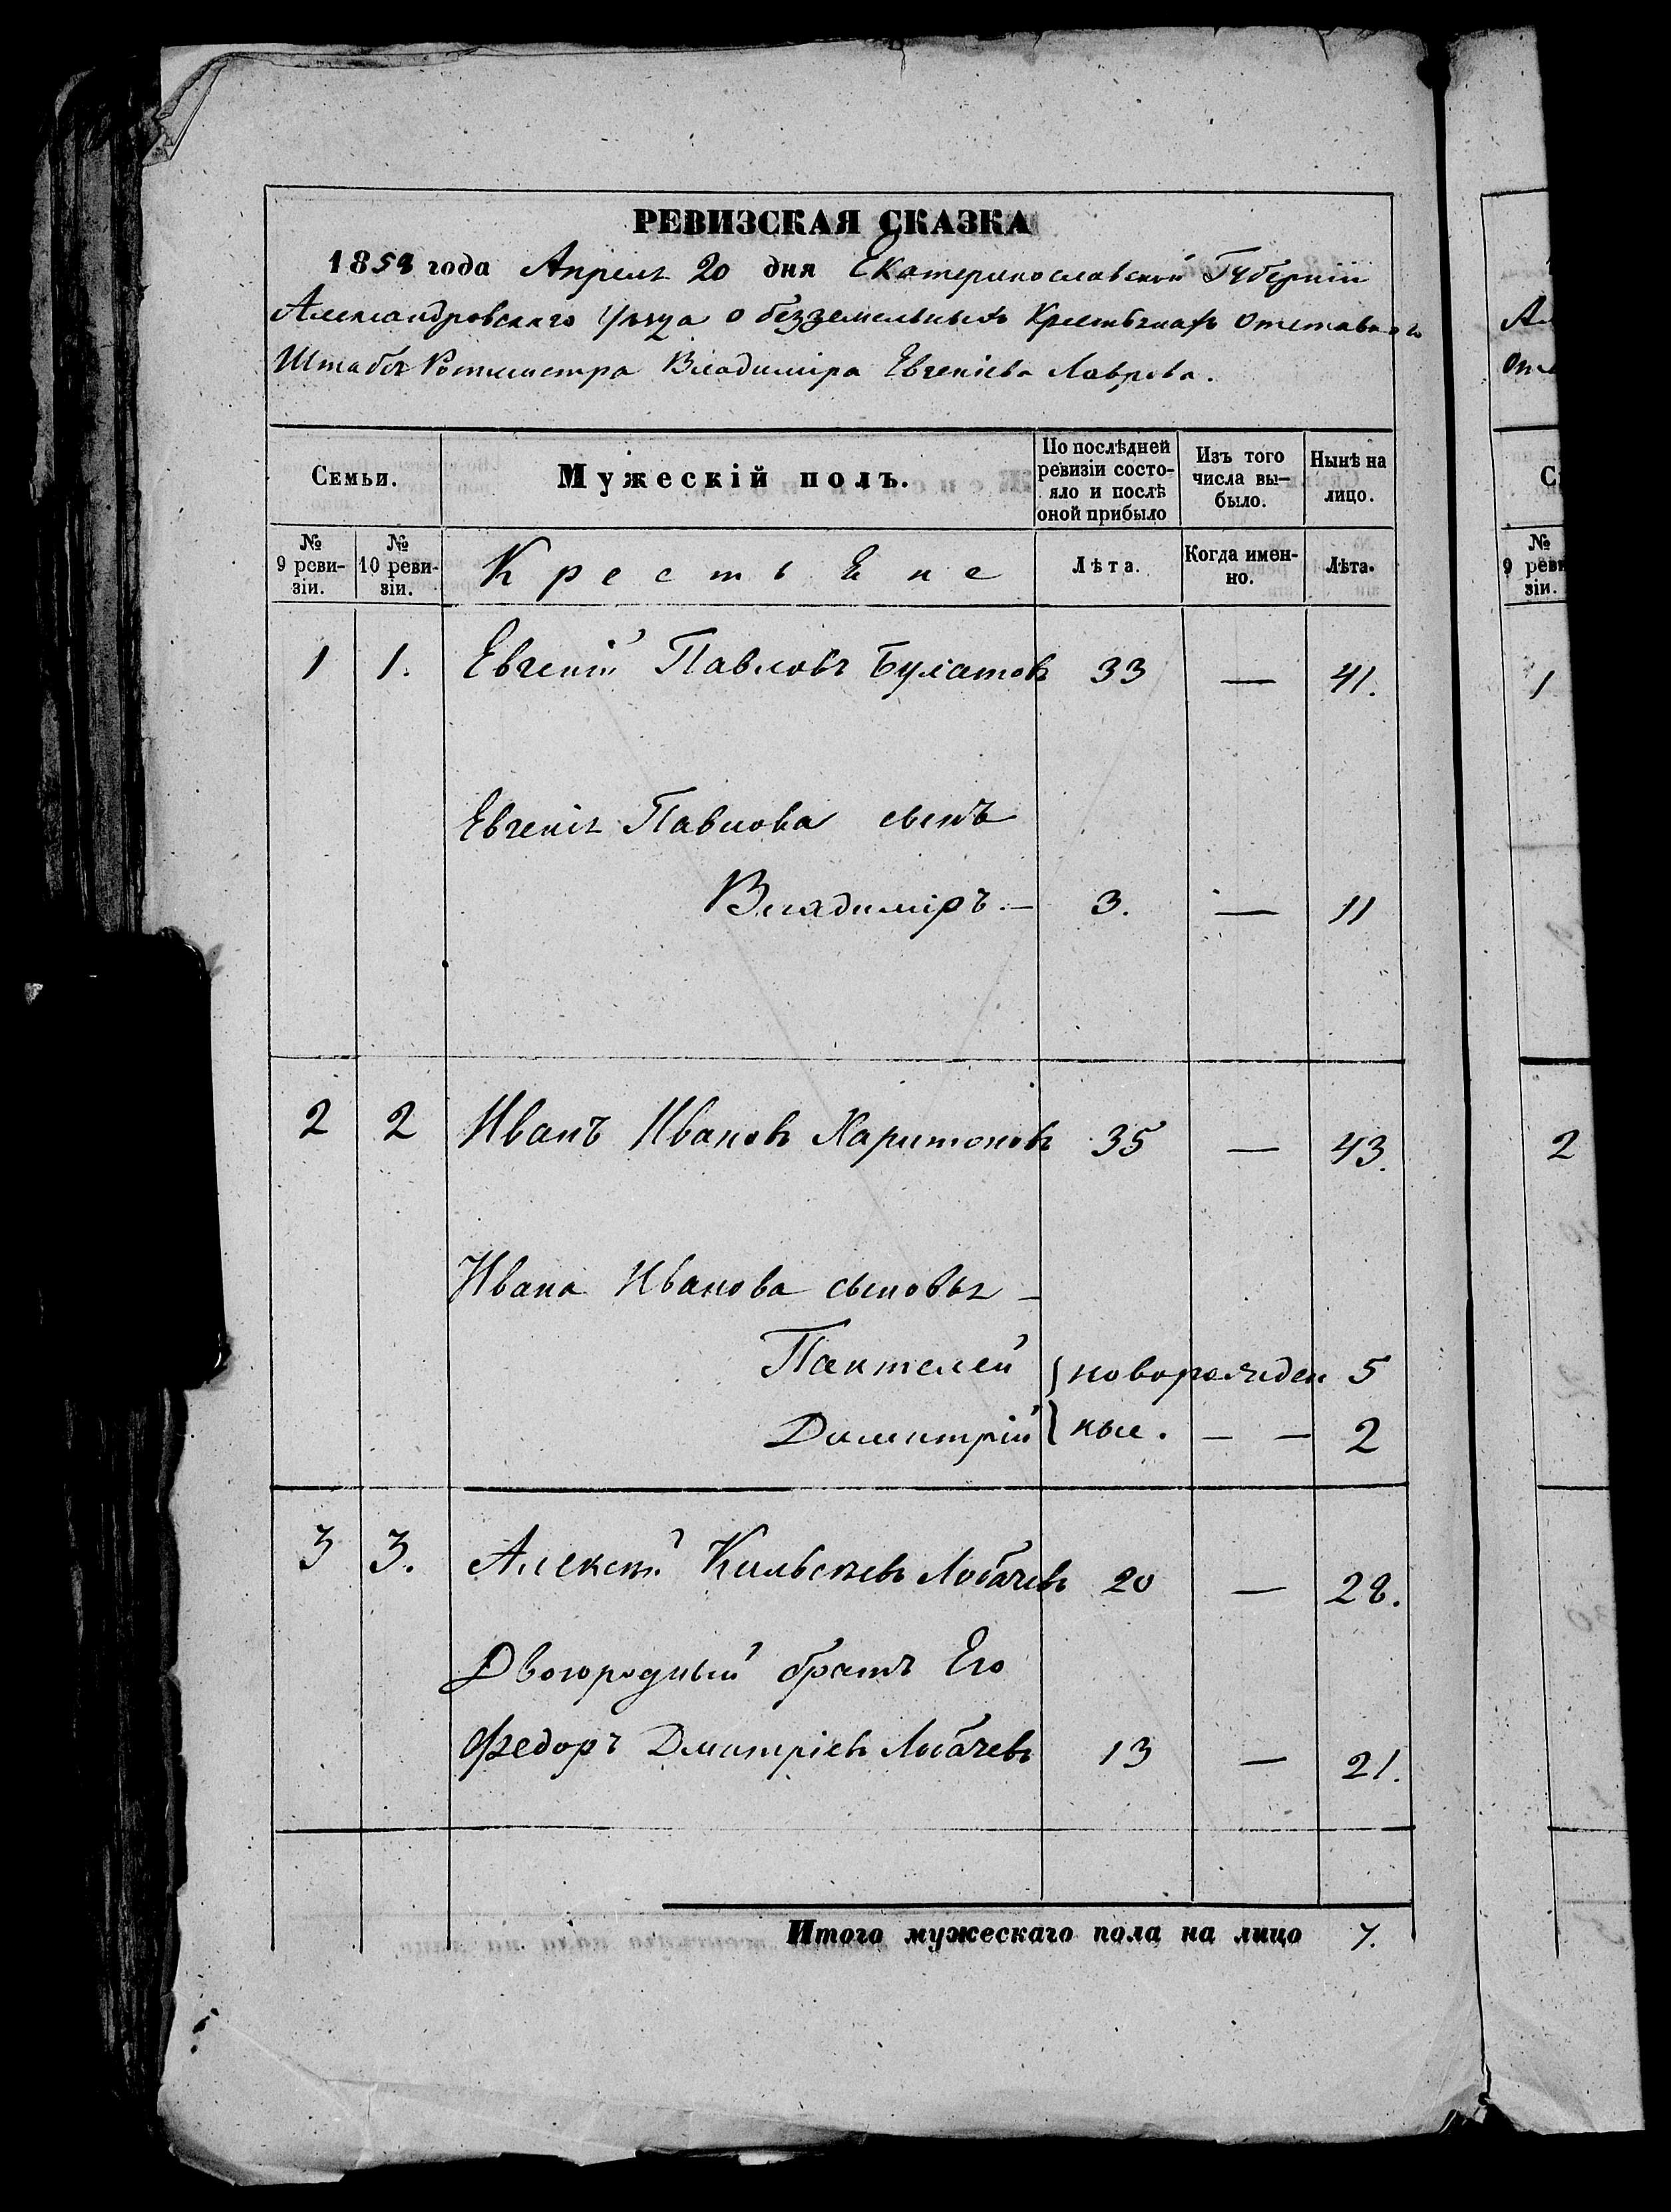 РЕВИЗСКАЯ СКАЗКА
1858 года Апреля 20 дня Екатеринославской Губерніи
Александровскаго Уѣзда о безземельныхъ Крестьянахъ Отставнаго
Штабсъ Ротмистра Владиміра Евгеніева Лаврова.
Семьи.
Мужескій полъ.
По послѣдней ревизіи состо-
яло и послѣ оной прибыло
Изъ того числа вы-
было.
Нынѣ на лицо.
№ 9 реви-
зіи.
№ 10 реви-
зіи.
Крестьяне
Лѣта.
Когда имен-
но.
Лѣта.
1 1. Евгеній Павловъ Булатовъ 33 — 41.
Евгенія Павлова сынъ
Владиміръ. — 3. — 11
2 2 Иванъ Ивановъ Харитоновъ 35 — 43.
Ивана Иванова сыновья —
Пантелей } новорожден 5
Димитрій } ные. — — 2
3 3. Алексѣй Лобачевъ 20 — 28.
Двоюродный братъ Его
Федоръ Дмитріевъ Лобачевъ 13 — 21.
Итого мужескаго пола на лицо 7.
А
От
С
№
9 реви
зіи.
1
2